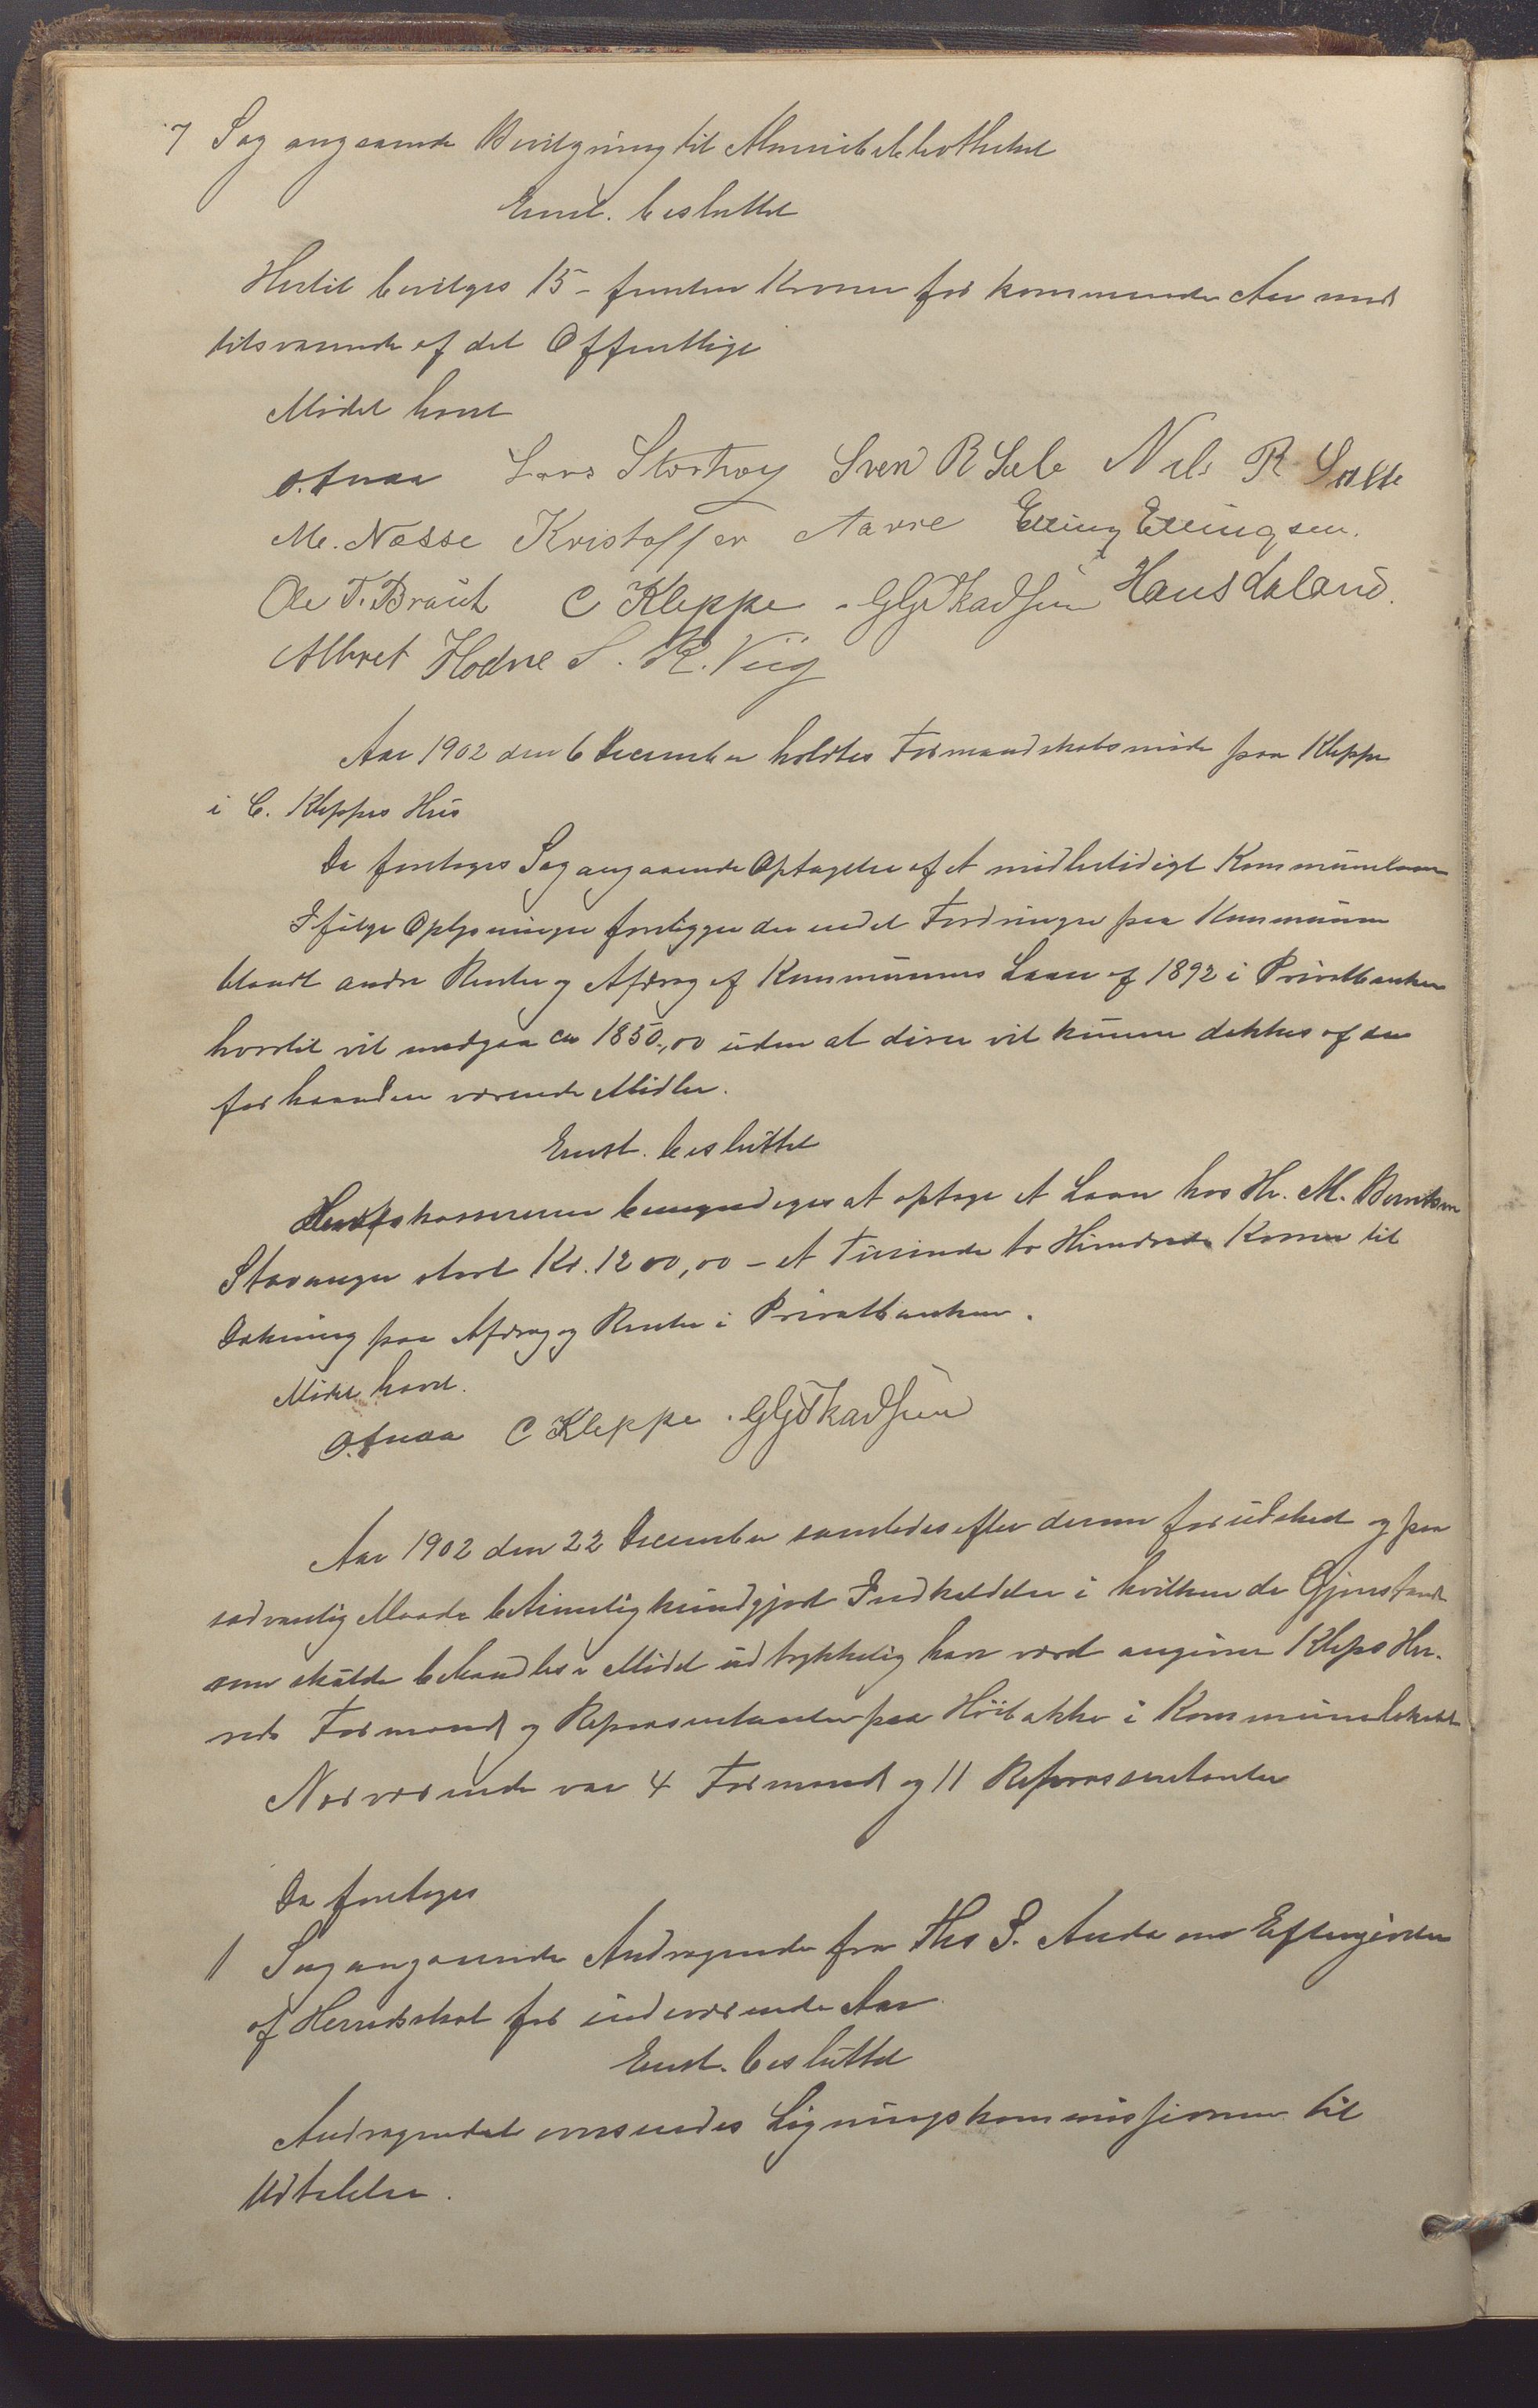 7 Sag angaaende Bevilgning til Almuebibliotheket
Enst. besluttet
Hertil bevilges 15 - femten Kroner for kommende Aar mod
tilsvarende af det Offentlige
Mødet hævet
Lars Storhoug Sven R Sele Nils R Salte
M. Næsse Kristoffer Aarre Elling Ellingsen.
Ole T. Braut C Kleppe . GGSkadsem Hans Laland.
Albret Hodne S. R. Viig
Aar 1902 den 6 December holdtes Formandskabsmøde paa Kleppe
i C. Kleppes Hus
Da foretoges Sag angaaende Optagelse af et midlertidigt Kommunelaan
Ifølge Oplysninger foreligger der endel Fordringer paa Kommunen
blandt andre Renter og Afdrag af Kommunens Laan af 1892 i Privatbanken
hvortil vil medgaa ca 1850,00 uden at disse vil kunne dækkes af de
for haanden værende Midler.
Enst. besluttet
Herredskassereren bemyndiges at optage et Laan hos Hr. M. Berntsen
Stavanger stort Kr. 1200,00 - et Tusinde to Hundrede Kroner til
Dækning paa Afdrag og Renter i Privatbanken.
Mødet hævet.
C Kleppe . GGSkadsem
Aar 1902 den 22 December samledes efter dertil forudsked og paa
sædvanlig Maade betimelig kundgjort Indkaldelse i hvilken de Gjenstande
som skulde behandles i Mødet udtrykkelig har været angivne Kleps Her-
reds Formænd og Repræsentanter paa Høibakke i Kommunelokalet
Nærværende var 4 Formænd og 11 Repræsentanter
Da foretoges
1 Sag angaaende Andragende fra Ths S. Anda om Eftergivelse
af Herredsskat for indeværende Aar
Enst. besluttet
Andragendet oversendes Ligningskommissionen til
Udtalelse.